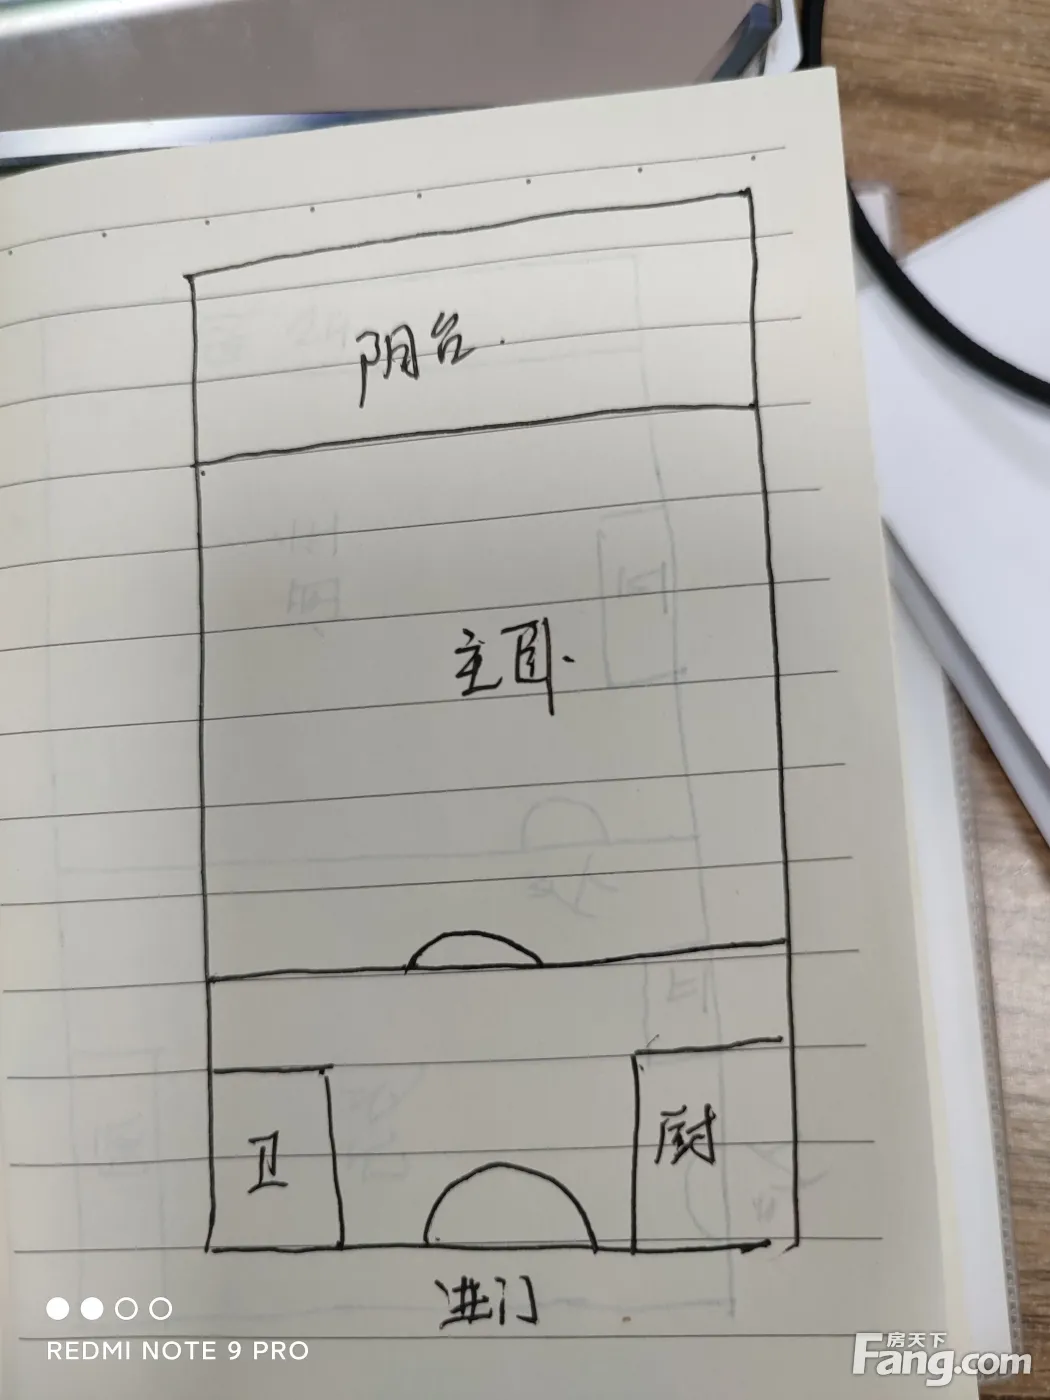 阳台.
主卧.
卫
厨
进门
REDMI NOTE 9 PRO
房天下
Fang.com